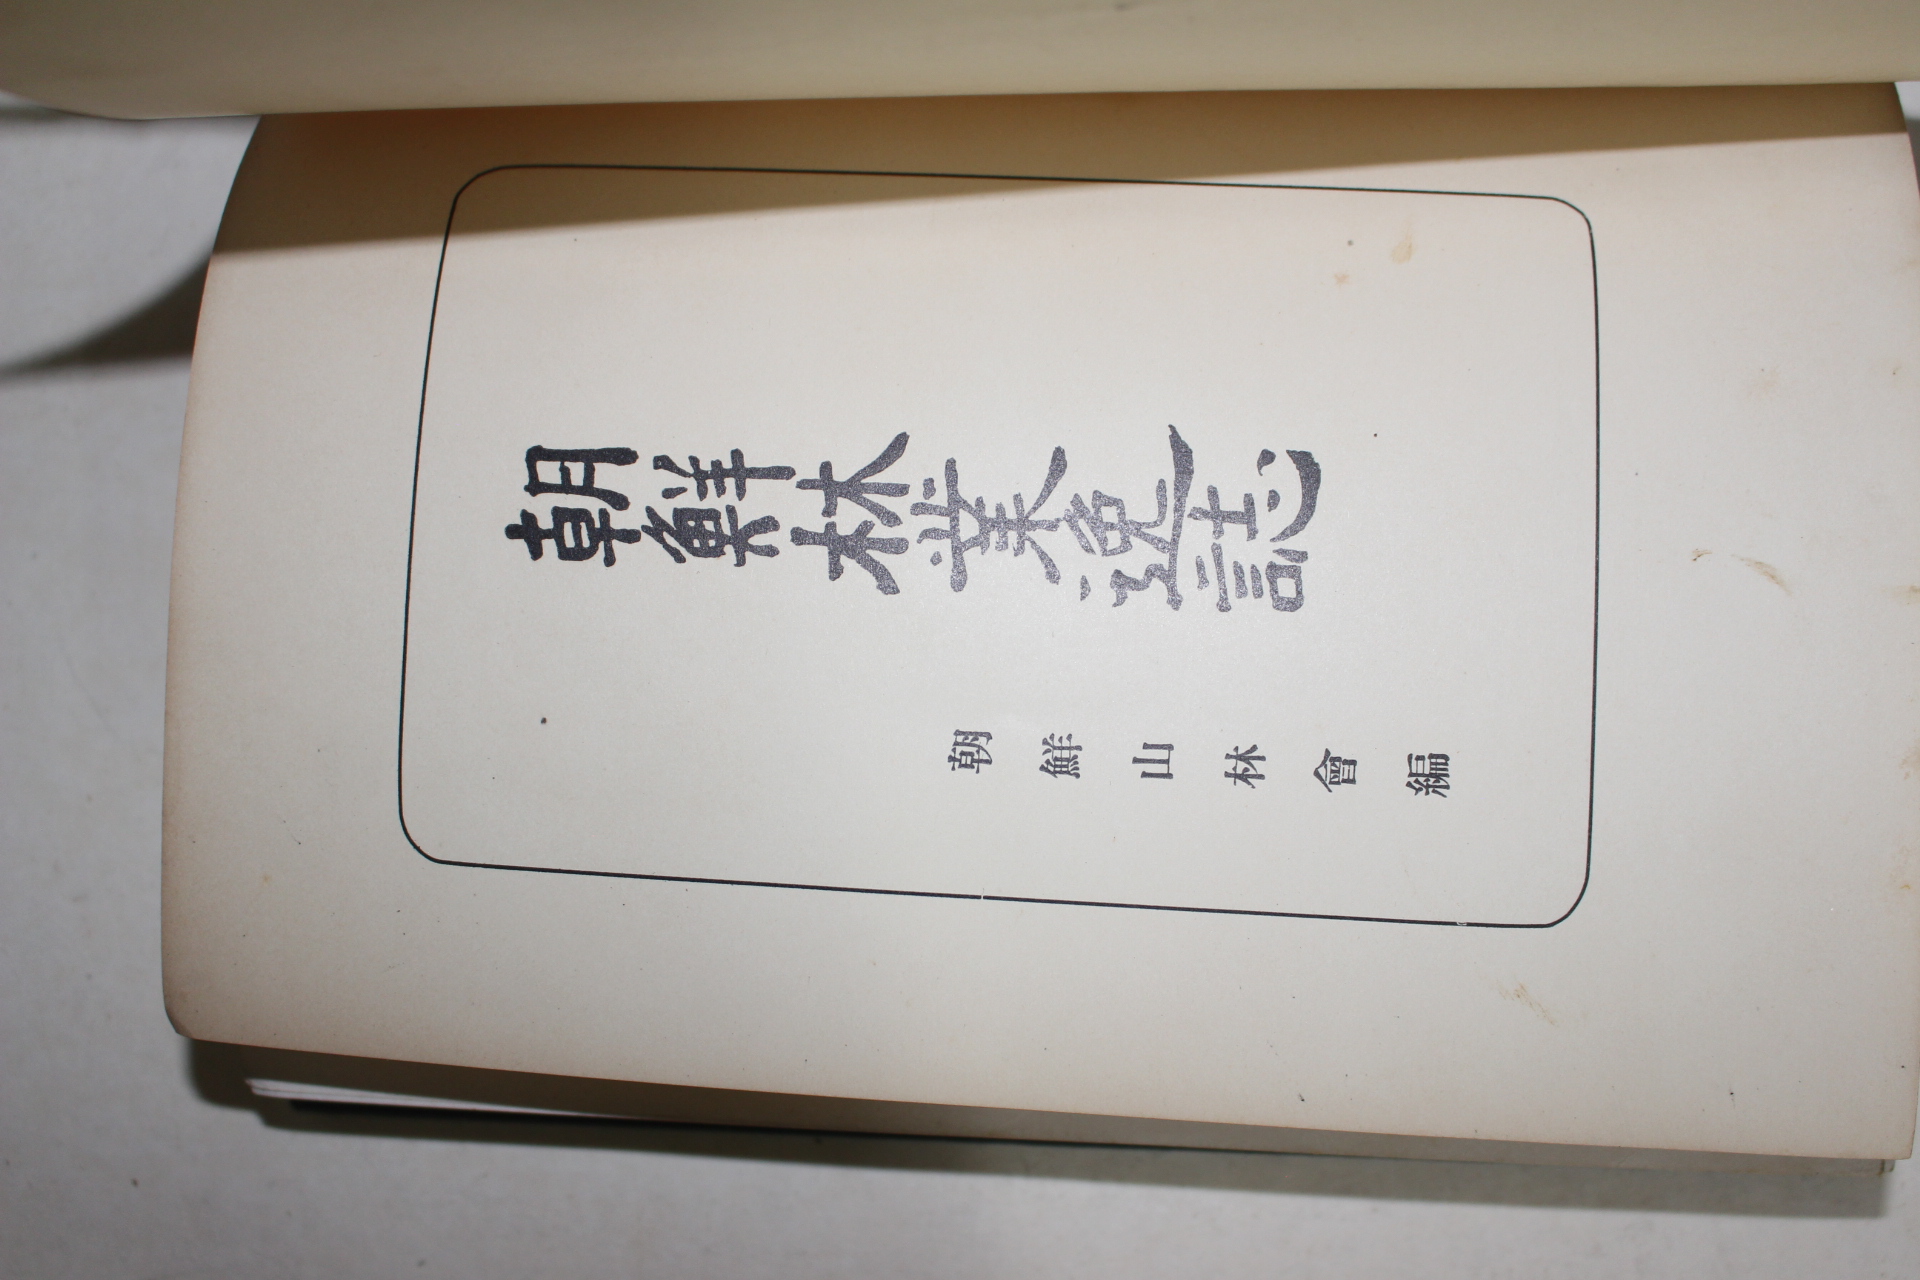 朝鮮林業逸誌
朝鮮山林會編